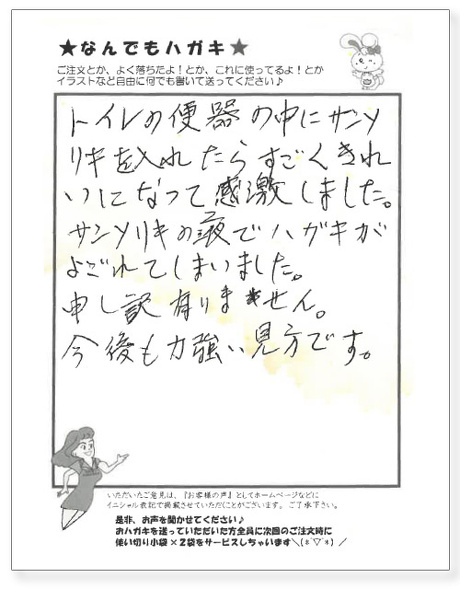 ★なんでもハガキ★
ご注文とか、よく落ちたよ！とか、これに使ってるよ！とか
イラストなど自由に何でも書いて送ってください♪
トイレの便器の中にサンソ
リキを入れたらすごくきれ
いになって感激しました。
サンソリキの液でハガキが
よごれてしまいました。
申し訳有りません。
今後も力強い見方です。
いただいたご意見は、『お客様の声』としてホームページなどに
イニシャル表記で掲載させていただくことがございます。ご了承下さい。
是非、お声を聞かせてください♪
おハガキを送っていただいた方全員に次回のご注文時に
使い切り小袋×2袋をサービスしちゃいます＼(*^▽^*)／